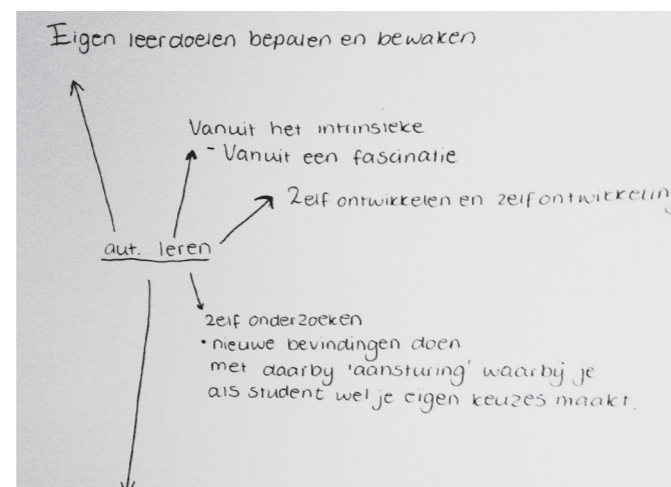 Eigen leerdoelen bepalen en bewaken
Vanuit het intrinsieke
- Vanuit een fascinatie
Zelf ontwikkelen en zelfontwikkeling
aut. leren
zelf onderzoeken
• nieuwe bevindingen doen
met daarby 'aansturing' waarby je
als student wel je eigen keuzes maakt.